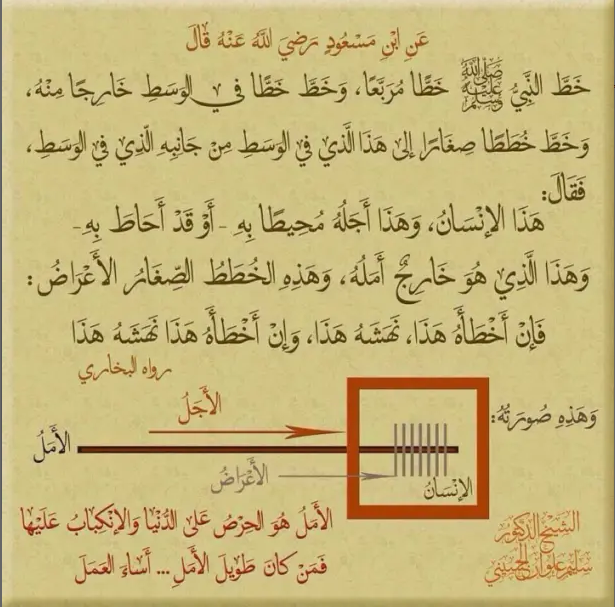 عَنِ ابْنِ مَسْعُودٍ رَضِيَ اللَّهُ عَنْهُ قَالَ
خَطَّ النَّبِيُّ ﷺ خَطًّا مُرَبَّعًا، وَخَطَّ خَطًّا فِي الوَسَطِ خَارِجًا مِنْهُ،
وَخَطَّ خُطَطًا صِغَارًا إِلَى هَذَا الَّذِي فِي الوَسَطِ مِنْ جَانِبِهِ الَّذِي فِي الوَسَطِ،
فَقَالَ:
هَذَا الإِنْسَانُ، وَهَذَا أَجَلُهُ مُحِيطٌا بِهِ - أَوْ قَدْ أَحَاطَ بِهِ -
وَهَذَا الَّذِي هُوَ خَارِجٌ أَمَلُهُ، وَهَذِهِ الخُطَطُ الصِّغَارُ الأَعْرَاضُ:
فَإِنْ أَخْطَأَهُ هَذَا، نَهَشَهُ هَذَا، وَإِنْ أَخْطَأَهُ هَذَا نَهَشَهُ هَذَا
رواه البخاري
وَهَذِهِ صُورَتُهُ:
الأَجَلُ
الأَمَلُ
الأَعْرَاضُ
الإِنْسَانُ
الأَمَلُ هُوَ الحِرْصُ عَلَى الدُّنْيَا وَالإِنْكِبَابُ عَلَيْهَا
فَمَنْ كَانَ طَوِيلَ الأَمَلِ... أَسَاءَ العَمَلَ
الشيخ الدكتور
سليم علوان الحسيني